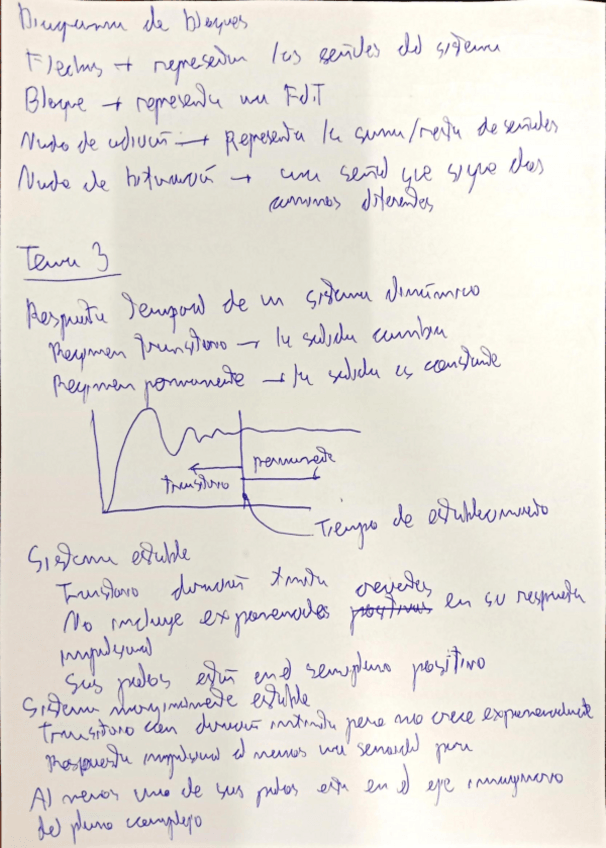 Diagrama de bloques
Flechas → representan las señales del sistema
Bloque → representa una FdT
Nudo de adición → Representa la suma/resta de señales
Nudo de bifurcación → una señal que sigue dos
caminos diferentes
Tema 3
Respuesta temporal de un sistema dinámico
Regimen transitorio → la salida cambia
Regimen permanente → la salida es constante
permanente
transitorio
Tiempo de establecimiento
Sistema estable
Transitorio duración finita
crecientes
No incluye exponenciales positivas en su respuesta
impulsional
Sus polos están en el semiplano positivo
Sistema marginalmente estable
Transitorio con duración infinita pero no crece exponencialmente
Respuesta impulsional al menos una senoidal pura
Al menos uno de sus polos esta en el eje imaginario
del plano complejo